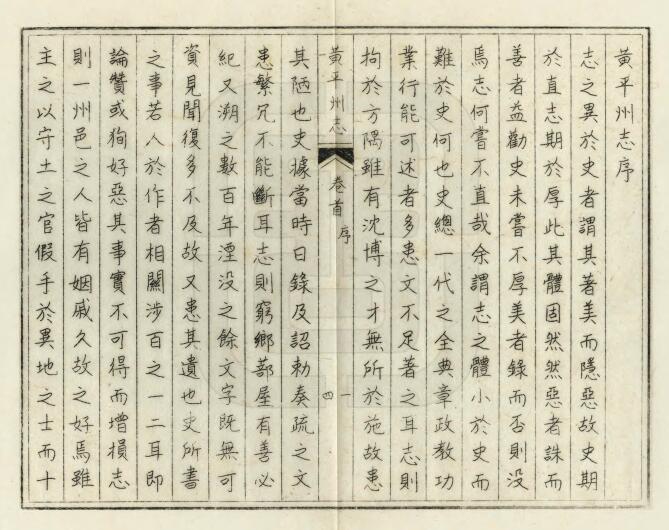 黃平州志序
志之異於史者謂其著美而隱惡故史期
於直志期於厚此其體固然然惡者誅而
善者益勸史未嘗不厚美者錄而否則没
焉志何嘗不直哉余謂志之體小於史而
難於史何也史總一代之全典章政教功
業行能可述者多患文不足著之耳志則
拘於方隅雖有沈博之才無所於施故患
黃平州志
卷首
序
一
四
其陋也史據當時日錄及詔勅奏疏之文
患繁冗不能斷耳志則窮鄉蔀屋有善必
紀又溯之數百年湮没之餘文字既無可
資見聞復多不及故又患其遺也史所書
之事若人於作者相關涉百之一二耳即
論贊或狥好惡其事實不可得而增損志
則一州邑之人皆有姻戚久故之好焉雖
主之以守土之官假手於異地之士而十